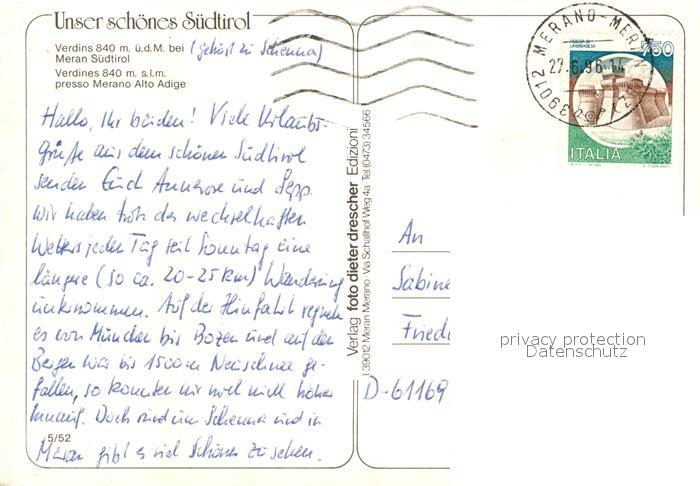 Unser schönes Südtirol
Verdins 840 m. ü.d.M. bei (gehört zu Schenna)
Meran Südtirol
Verdines 840 m. s.l.m.
presso Merano Alto Adige
Hallo, Ihr beiden! Viele Urlaubs-
grüße aus dem schönen Südtirol
senden Euch Annerose und Sepp.
Wir haben trotz des wechselhaften
Wetters jeden Tag seit Sonntag eine
längere (so ca. 20-25 km) Wanderung
unternommen. Auf der Hinfahrt regnete
es von München bis Bozen und auf den
Bergen war bis 1500 m Neuschnee ge-
fallen, so konnten wir noch nicht höher
hinauf. Doch rund um Schenna und in
Meran gibt es viel Schönes zu sehen.
5/52
Verlag foto dieter drescher Edizioni
I-39012 Meran Merano - Via Schallhof Weg 4a Tel (0473) 34566
39012 MERANO-MERAN
27.6.96.14
750
ROCCA DI
URBISAGLIA
ITALIA
An
Sabine
Fried
D-61169
privacy protection
Datenschutz